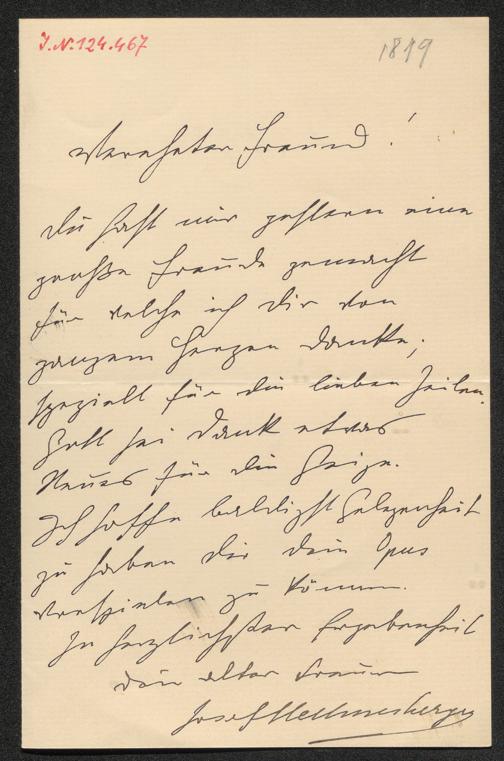 I.N. 124.467
1879
Verehrter Freund!
Du hast mir gestern eine
große Freude gemacht
für welche ich Dir von
ganzem Herzen danke,
speziell für die lieben Zeilen.
Gott sei Dank etwas
Neues für die Geige.
Ich hoffe baldigst Gelegenheit
zu haben Dir dein Opus
vorspielen zu können.
In herzlichster Ergebenheit
dein alter Freund
Josef Hellmesberger